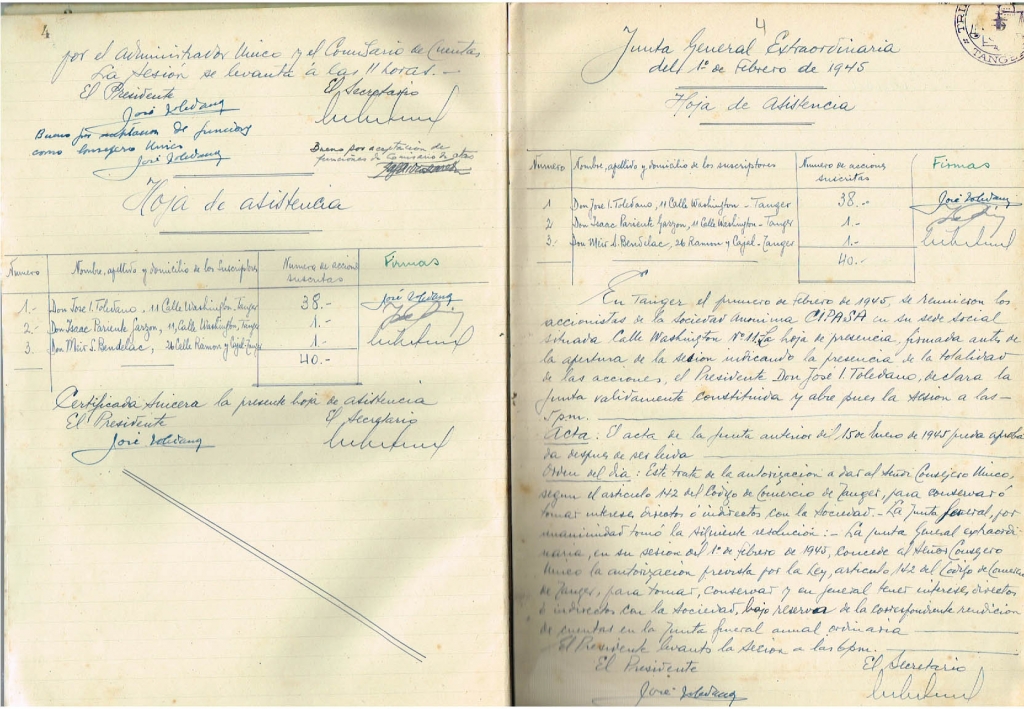 4
por el Administrador Unico y el Comisario de Cuentas
La Sesión se levanta á las 11 horas.-
El Presidente El Secretario
José Toledano
Bueno por aceptacion de funciones
como Consejero Unico
José Toledano
Bueno por aceptación de
funciones de Comisario de ctas
Hoja de asistencia
Numero Nombre, apellido y domicilio de los Suscriptores Numero de acciones suscritas Firmas
1.- Don Jose I. Toledano, 11 Calle Washington, Tanger 38.- José Toledano
2.- Don Isaac Pariente Garzon, 11, Calle Washington, Tanger 1.-
3.- Don Meir S. Bendelac, 26 Calle Ramon y Cajal-Tanger 1.-
40.-
Certificada sincera la presente hoja de asistencia
El Presidente El Secretario
José Toledano
4
Junta General Extraordinaria
del 1º de Febrero de 1945
Hoja de asistencia
TANGER
Numero Nombre, apellido y domicilio de los suscriptores Numero de acciones suscritas Firmas
1 Don Jose I. Toledano, 11 Calle Washington - Tanger 38.- José Toledano
2 Don Isaac Pariente Garzon, 11 Calle Washington - Tanger 1.-
3.- Don Meir S. Bendelac, 26 Ramon y Cajal-Tanger 1.-
40.-
En Tanger, el primero de Febrero de 1945, se reunieron los
accionistas de la Sociedad Anonima CIPASA en su sede social
situada Calle Washington Nº 11. La hoja de presencia, firmada antes de
la apertura de la sesion indicando la presencia de la totalidad
de las acciones, el Presidente Don José I. Toledano, declara la
Junta validamente constituida y abre pues la sesion a las-
5pm.
Acta: El acta de la Junta anterior del 15 de Enero de 1945 queda aproba-
da despues de ser leida
Orden del dia: Este trata de la autorizacion a dar al Señor Consejero Unico,
segun el articulo 142 del Codigo de Comercio de Tanger, para conservar ó
tomar intereses directos ó indirectos con la Sociedad.- La Junta General, por
unanimidad tomó la siguiente resolución:- La Junta General extraordi-
naria, en su sesion del 1º de Febrero de 1945, concede al Señor Consejero
Unico la autorizacion prevista por la Ley, articulo 142 del Codigo de Comercio
de Tanger, para tomar, conservar y en general tener intereses directos
ó indirectos con la Sociedad, bajo reserva de la correspondiente rendicion
de cuentas en la Junta General annual ordinaria
El Presidente levanto la Secion a las 6pm.
El Presidente El Secretario
José Toledano